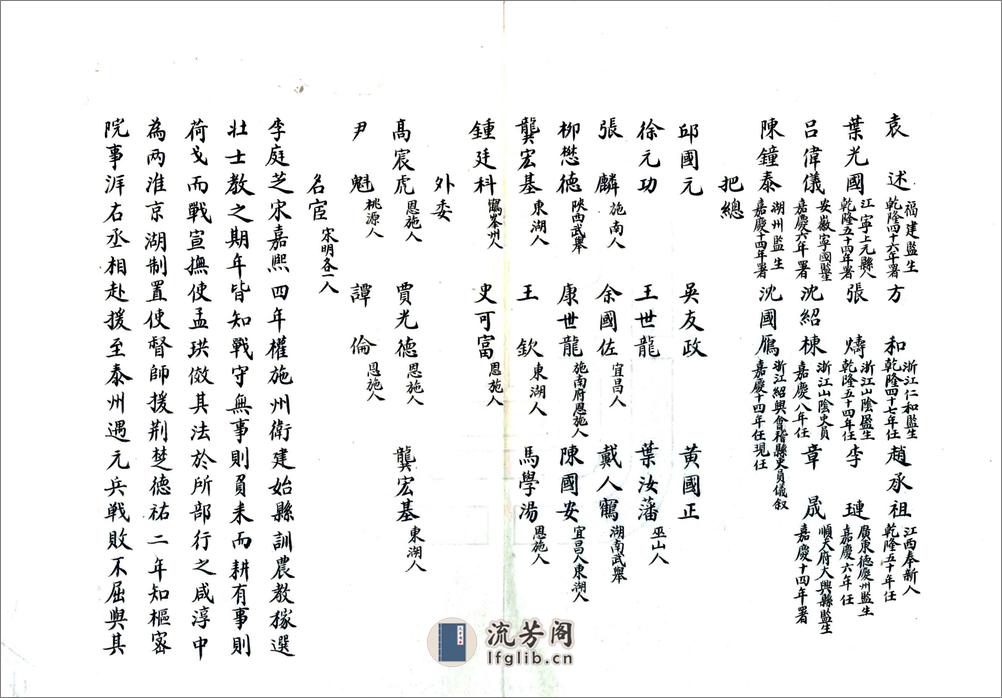 袁　述 福建監生 乾隆四十六年署 方　和 浙江仁和監生 乾隆四十七年任 趙承祖 江西奉新人 乾隆五十年任
葉光國 江寧上元縣人 乾隆五十四年署 張　燽 浙江山陰監生 乾隆五十四年任 李　璉 廣東德慶州監生 嘉慶六年任
呂偉儀 安徽寧國監生 嘉慶六年署 沈紹棟 浙江山陰吏員 嘉慶八年任 章　晟 順天府大興縣監生 嘉慶十四年署
陳鐘泰 湖州監生 嘉慶十四年署 沈國鴈 浙江紹興會稽縣吏員儀叙 嘉慶十四年任現任
把總
邱國元　吳友政　黃國正
徐元功　王世龍　葉汝藩 巫山人
張　麟 施南人 余國佐 宜昌人 戴人鶴 湖南武舉
柳懋德 陝西武舉 康世龍 施南府恩施人 陳國安 宜昌人東湖人
龔宏基 東湖人 王　欽 東湖人 馬學湯 恩施人
鍾廷科 鶴峯州人 史可富 恩施人
外委
高宸虎 恩施人 賈光德 恩施人 龔宏基 東湖人
尹　魁 桃源人 譚　倫 恩施人
名宦 宋明各一人
李庭芝宋嘉熙四年權施州衛建始縣訓農教稼選
壯士教之期年皆知戰守無事則負耒而耕有事則
荷戈而戰宣撫使孟珙倣其法於所部行之咸淳中
為兩淮京湖制置使督師援荆楚德祐二年知樞密
院事湃右丞相赴援至泰州遇元兵戰敗不屈與其
流芳阁
lfglib.cn